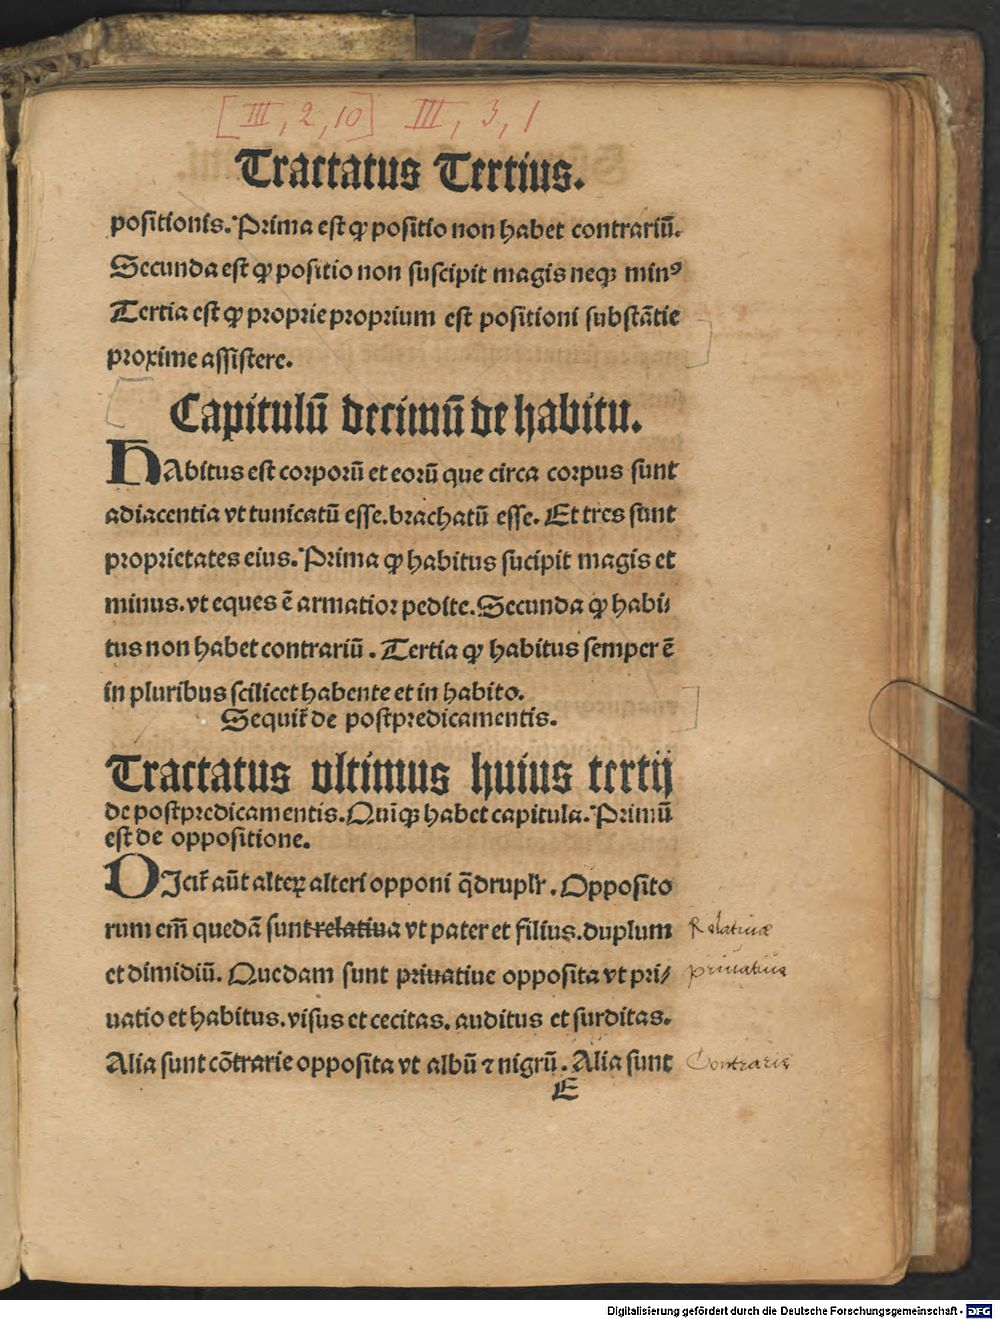 [III, 2, 10] III, 3, 1
Tractatus Tertius.
positionis. Prima est ꝙ positio non habet contrariū.
Secunda est ꝙ positio non suscipit magis neqꝫ minꝰ
Tertia est ꝙ proprie proprium est positioni substātie
proxime assistere.
Capitulū decimū de habitu.
HAbitus est corporū et eorū que circa corpus sunt
adiacentia vt tunicatū esse. brachatū esse. Et tres sunt
proprietates eius. Prima ꝙ habitus sucipit magis et
minus. vt eques ē armatior pedite. Secunda ꝙ habi⸗
tus non habet contrariū. Tertia ꝙ habitus semper ē
in pluribus scilicet habente et in habito.
Sequit̄ de postpredicamentis.
Tractatus vltimus huius tertij
de postpredicamentis. Quīqꝫ habet capitula. Primū
est de oppositione.
DIcit̄ aūt alteꝝ alteri opponi q̄drupl̄r. Opposito
rum em̄ quedā sunt relatiua vt pater et filius. duplum Relatiuae
et dimidiū. Quedam sunt priuatiue opposita vt pri⸗ priuatiua
uatio et habitus. visus et cecitas. auditus et surditas.
Alia sunt cōtrarie opposita vt albū ⁊ nigrū. Alia sunt Contrarie
E
Digitalisierung gefördert durch die Deutsche Forschungsgemeinschaft - DFG